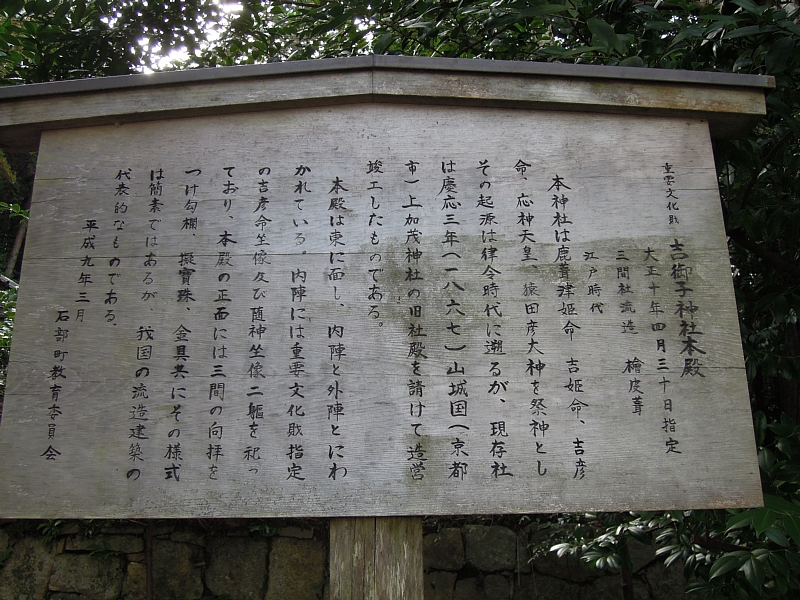 重要文化財 吉御子神社本殿
大正十年四月三十日指定
三間社流造 檜皮葺
江戸時代
本神社は鹿葦津姫命 吉姫命、吉彦
命、応神天皇、猿田彦大神を祭神とし
その起源は律令時代に遡るが、現存社
は慶応三年(一八六七)山城国(京都
市)上加茂神社の旧社殿を請けて造営
竣工したものである。
本殿は東に面し、内陣と外陣とにわ
かれている。内陣には重要文化財指定
の吉彦命坐像及び随神坐像二軀を祀っ
ており、本殿の正面には三間の向拝を
つけ勾欄、擬寳珠、金具共にその様式
は簡素ではあるが、我国の流造建築の
代表的なものである。
平成九年三月
石部町教育委員会